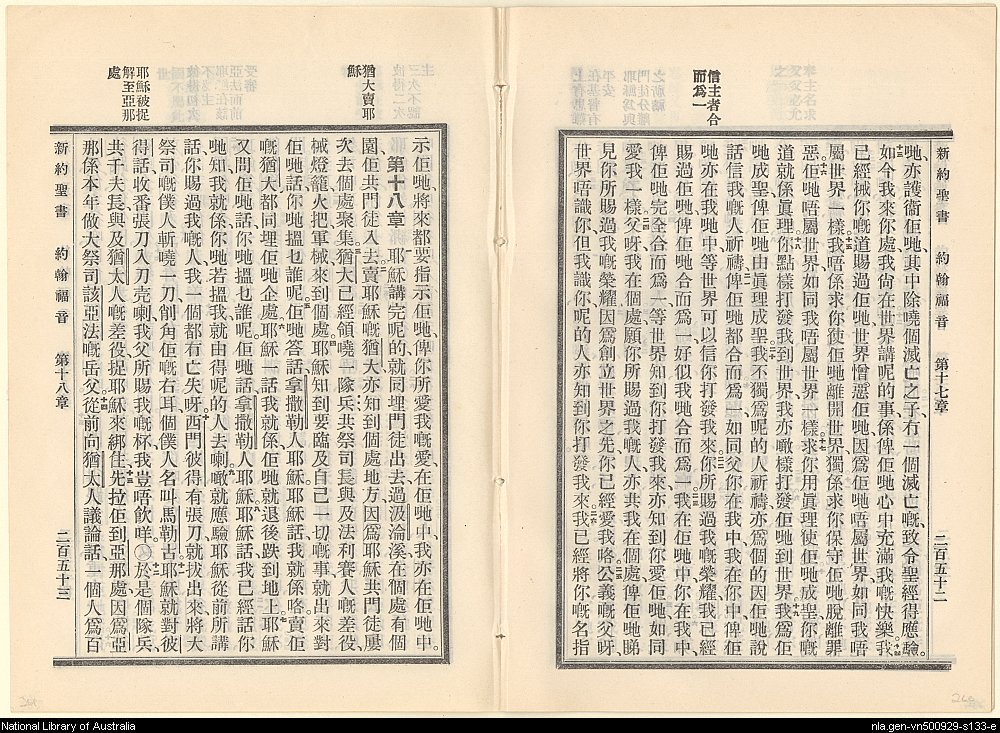 新約聖書 約翰福音 第十七章 二百五十二
信主者合
而爲一
哋、亦護衞佢哋、其中除曉個滅亡之子、冇一個滅亡嘅、致令聖經得應驗。
十三如今我來你處、我尙在世界講呢的事、係俾佢哋心中充滿我嘅快樂。十四我
已經械你嘅道賜過佢哋、世界憎惡佢哋、因爲佢哋唔屬世界、如同我唔
屬世界一樣。十五我唔係求你使佢哋離開世界、獨係求你保守佢哋脫離罪
惡。十六佢哋唔屬世界、如同我唔屬世界一樣。十七求你用眞理使佢哋成聖、你嘅
道就係眞理。十八你點樣打發我到世界、我亦噉樣打發佢哋到世界。十九我爲佢
哋成聖、俾佢哋由眞理成聖。二十我不獨爲呢的人祈禱、亦爲個的因佢哋說
話信我嘅人祈禱、二一俾佢哋都合而爲一、如同父你在我中、我在你中、俾佢
哋亦在我哋中、等世界可以信你打發我來。二二你所賜過我嘅榮耀、我已經
賜過佢哋、俾佢哋合而爲一、好似我哋合而爲一。二三我在佢哋中、你在我中、
俾佢哋完全合而爲一、等世界知到你打發我來、亦知到你愛佢哋、如同
愛我一樣。二四父呀、我在個處、願你所賜過我嘅人、亦共我在個處、俾佢哋睇
見你所賜過我嘅榮耀、因爲創立世界之先、你已經愛我咯。二五公義嘅父呀、
世界唔識你、但我識你、呢的人亦知到你打發我來。二六我已經將你嘅名指
猶大賣耶
穌
耶穌被捉
解至亞那
處
示佢哋、將來都要指示佢哋、俾你所愛我嘅愛、在佢哋中、我亦在佢哋中。
第十八章 耶穌講完呢的、就同埋門徒出去、過汲淪溪、在個處有個
園、佢共門徒入去。二賣耶穌嘅猶大、亦知到個處地方、因爲耶穌共門徒屢
次去個處聚集。三猶大已經領曉一隊兵、共祭司長與及法利賽人嘅差役、
械燈籠火把軍械來到個處。四耶穌知到要臨及自己一切嘅事、就出來對
佢哋話、你哋搵乜誰呢。五佢哋答話、拿撒勒人耶穌、耶穌話、我就係咯、賣佢
嘅猶大都同埋佢哋企處。六耶穌一話我就係、佢哋就退後跌到地上。七耶穌
又問佢哋話、你哋搵乜誰呢、佢哋話、拿撒勒人耶穌。八耶穌話、我已經話你
哋知、我就係、你哋若搵我、就由得呢的人去喇。九噉就應驗耶穌從前所講
話、你賜過我嘅人、我一個都冇亡失呀。十西門彼得有張刀、就拔出來、將大
祭司嘅僕人斬曉一刀、削角佢嘅右耳、個僕人名叫馬勒古。十一耶穌就對彼
得話、收番張刀入刀壳喇、我父所賜我嘅杯、我豈唔飲咩。○十二於是個隊兵
共千夫長、與及猶太人嘅差役、捉耶穌來綁住、十三先拉佢到亞那處、因爲亞
那係本年做大祭司該亞法嘅岳父。十四從前向猶太人議論話、一個人爲百
新約聖書 約翰福音 第十八章 二百五十三
National Library of Australia
nla.gen-vn500929-s133-e